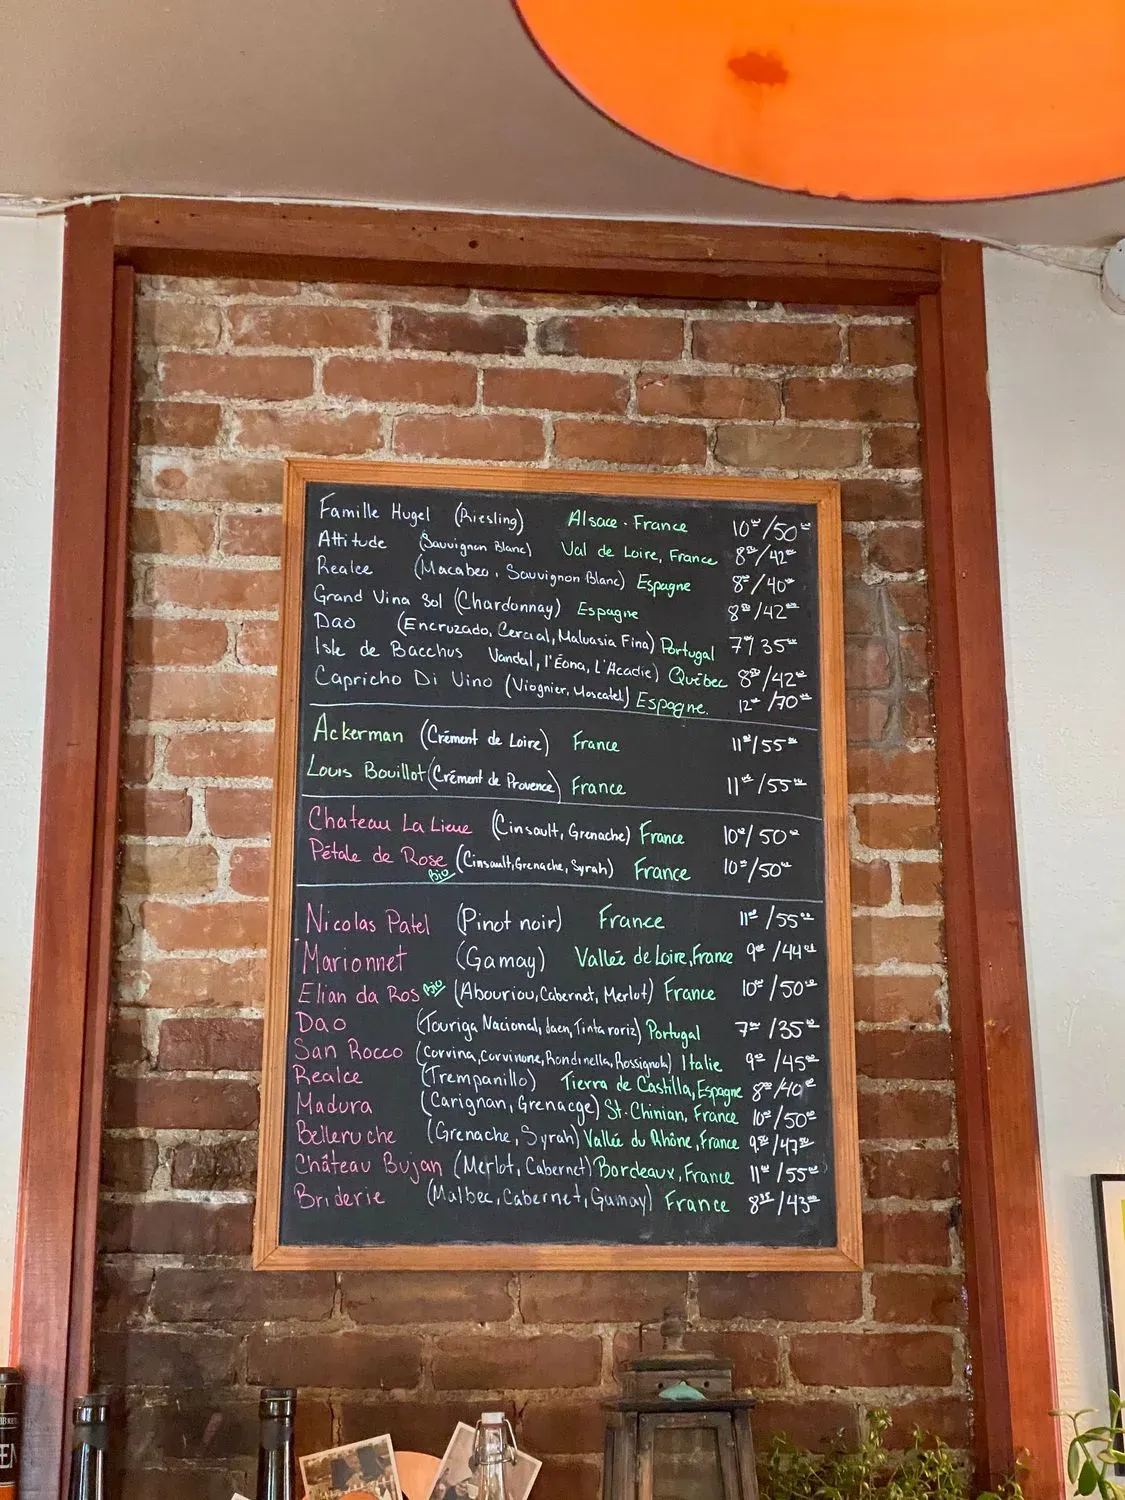 Famille Hugel (Riesling) Alsace - France 10⁰⁰/50⁰⁰
Attitude (Sauvignon Blanc) Val de Loire, France 8⁵⁰/42⁰⁰
Realce (Macabeo, Sauvignon Blanc) Espagne 8⁰⁰/40⁰⁰
Grand Vina Sol (Chardonnay) Espagne 8⁵⁰/42⁰⁰
Dao (Encruzado, Cercial, Malvasia Fina) Portugal 7⁰⁰/35⁰⁰
Isle de Bacchus Vandal, l'Éona, L'Acadie) Québec 8⁵⁰/42⁰⁰
Capricho Di Vino (Viognier, Moscatel) Espagne. 12⁰⁰/70⁰⁰
Ackerman (Crément de Loire) France 11⁰⁰/55⁰⁰
Louis Bouillot (Crément de Provence) France 11⁰⁰/55⁰⁰
Chateau La Lieue (Cinsault, Grenache) France 10⁰⁰/50⁰⁰
Pétale de Rose (Cinsault, Grenache, Syrah) France 10⁰⁰/50⁰⁰
Bio
Nicolas Patel (Pinot noir) France 11⁰⁰/55⁰⁰
Marionnet (Gamay) Vallée de Loire, France 9⁰⁰/44⁰⁰
Elian da Ros Bio (Abouriou, Cabernet, Merlot) France 10⁰⁰/50⁰⁰
Dao (Touriga Nacional, Jaen, Tinta roriz) Portugal 7⁰⁰/35⁰⁰
San Rocco (Corvina, Corvinone, Rondinella, Rossignola) Italie 9⁰⁰/45⁰⁰
Realce (Trempanillo) Tierra de Castilla, Espagne 8⁰⁰/40⁰⁰
Madura (Carignan, Grenacge) St-Chinian, France 10⁰⁰/50⁰⁰
Belleruche (Grenache, Syrah) Vallée du Rhône, France 9⁵⁰/47⁰⁰
Château Bujan (Merlot, Cabernet) Bordeaux, France 11⁰⁰/55⁰⁰
Briderie (Malbec, Cabernet, Gamay) France 8⁷⁵/43⁰⁰